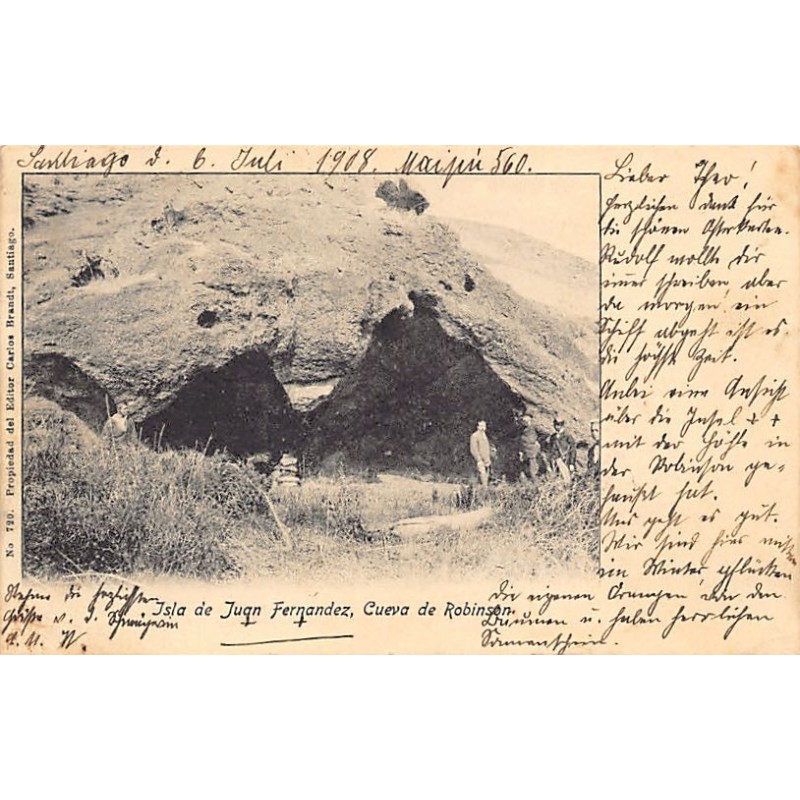 Santiago d. 6. Juli 1908. Maipú 560.
Lieber Theo!
Herzlichen Dank für
die schönen Osterkarten.
Rudolf wollte dir
immer schreiben, aber
da morgen ein
Schiff abgeht ist es
die höchste Zeit.
Anbei eine Ansicht
über die Insel ++
mit der Höhle in
der Robinson ge-
haust hat.
Uns geht es gut.
Wir sind hier mitten
im Winter, pflücken
die eigenen Orangen von den
Bäumen u. haben herrlichen
Sonnenschein.
Nehme die herzlichsten
Grüsse v. d. Schwägerin
No 720. Propiedad del Editor Carlos Brandt, Santiago.
Isla de Juan Fernandez, Cueva de Robinson.